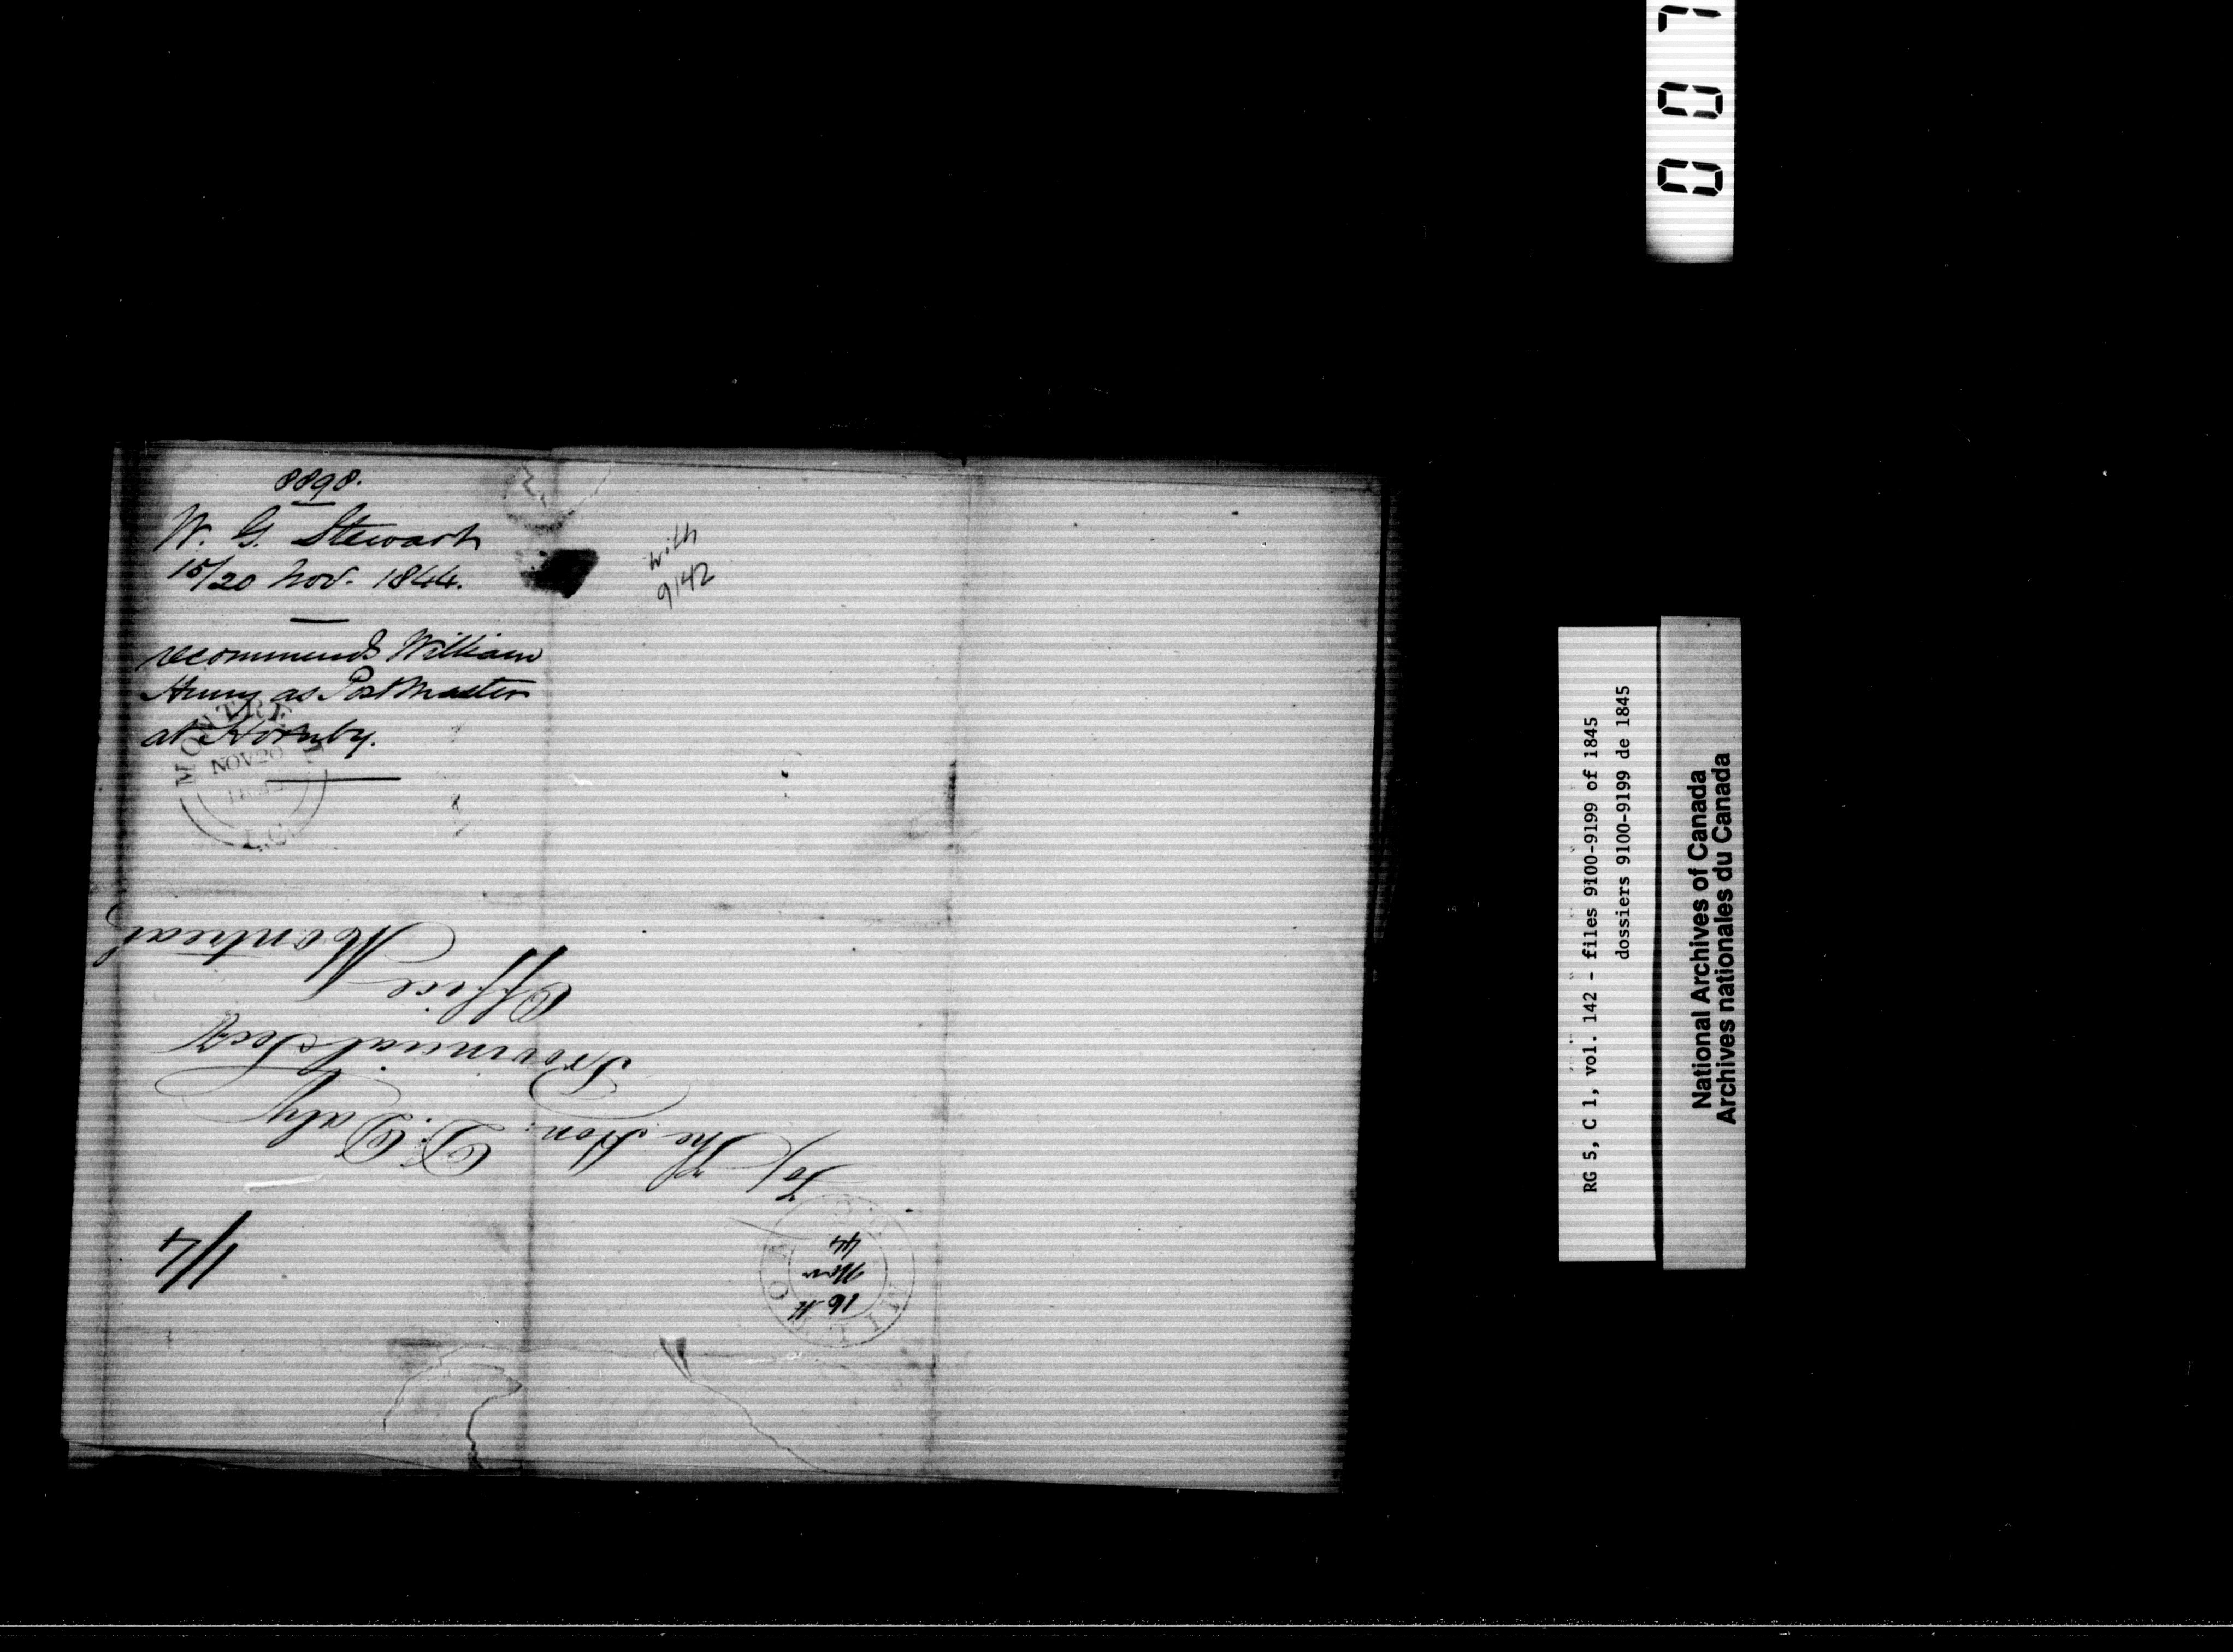 8898.
W. G. Stewart
15/20 Nov. 1844.
recommends William
Henry as Post Master
at Hornby.
MONTREAL
NOV 20
L.C.
with
9142
To/ The Hon: D. Daly
Provincial Secy
Office Montreal
1/4
MILTON
U.C
16th
Nov
44
007
RG 5, C 1, vol. 142 - files 9100-9199 of 1845
dossiers 9100-9199 de 1845
National Archives of Canada
Archives nationales du Canada